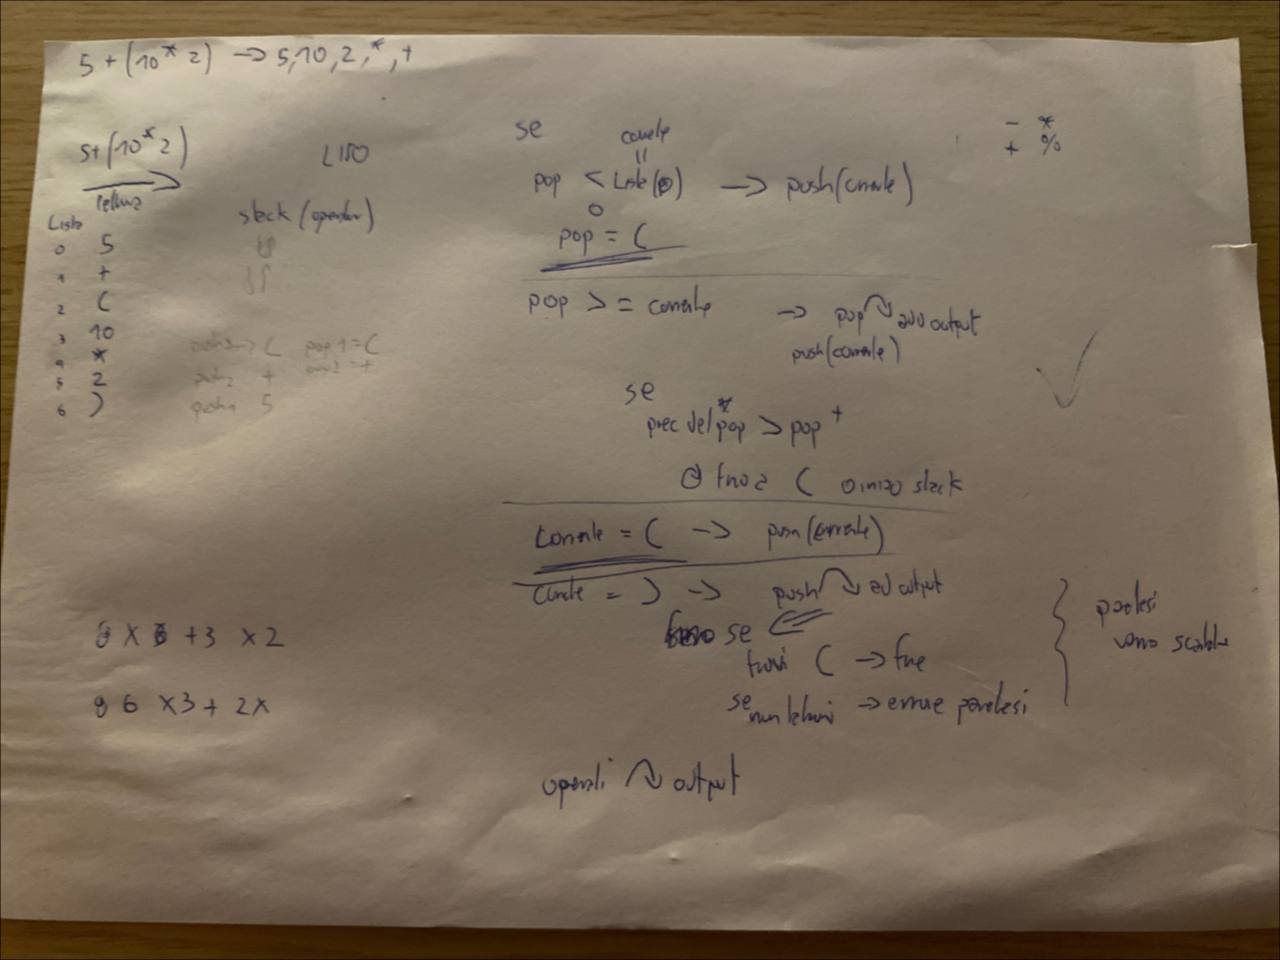 5 + (10 * 2) -> 5,10,2,*,+
5+(10*2)
LIFO
Lista
stack (operatori)
0 5
1 +
2 (
3 10
4 *
5 2
6 )
push3 -> ( pop 1 = (
push2 + pop2 = +
push1 5
8 x 6 + 3 x 2
6 x3 + 2x
- *
+ %
se
corrente
=
pop < Lista( ) -> push(corrente)
o
pop = (
pop >= corrente -> pop add output
push(corrente)
se
prec del pop * > pop +
fino a ( o inizio stack
corrente = ( -> push(corrente)
corrente = ) -> push ad output
se
trovi ( -> fine
se non la trovi -> errore parentesi
parentesi
vanno scartate
operandi output